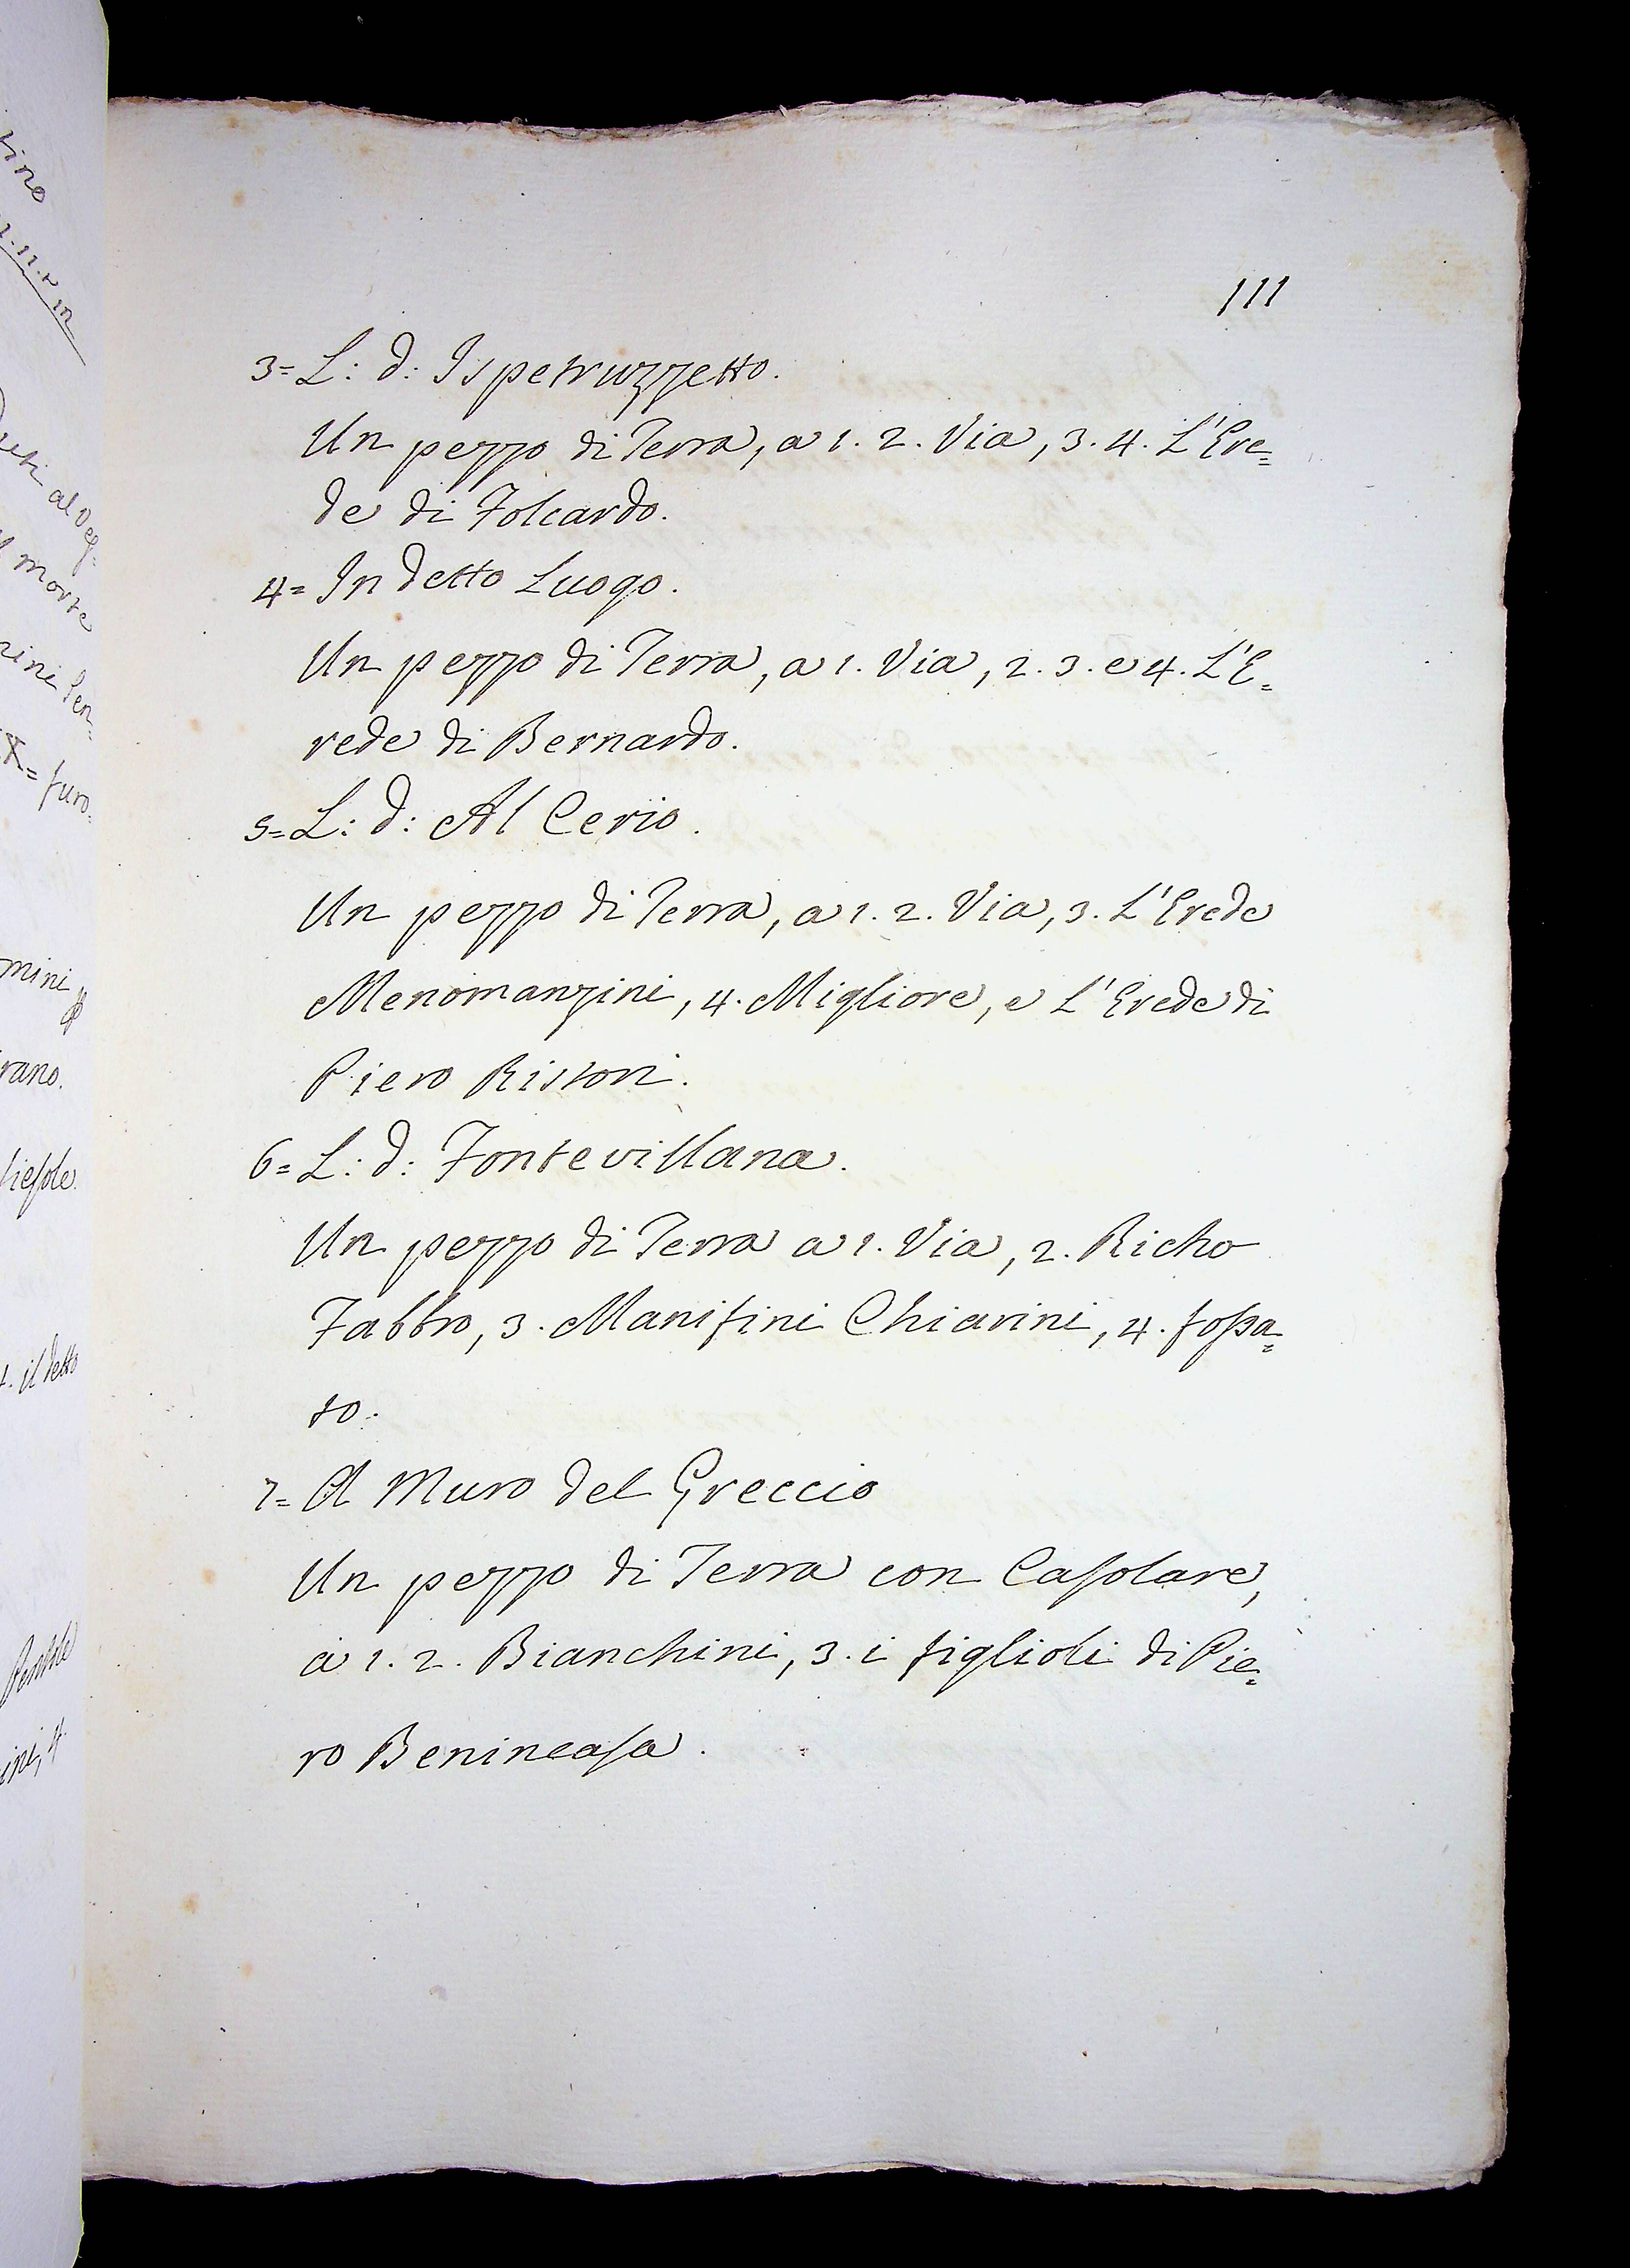 111
3= L: d: Ispetruzzetto.
Un pezzo di Terra, a 1. 2. Via, 3. 4. L'Ere=
de di Folcardo.
4= In detto Luogo.
Un pezzo di Terra, a 1. Via, 2. 3. e 4. L'E=
rede di Bernardo.
5= L: d: Al Cerio.
Un pezzo di Terra, a 1. 2. Via, 3. L'Erede
Menomanzini, 4. Migliore, e L'Erede di
Piero Ristori.
6= L: d: Fontevillana.
Un pezzo di Terra a 1. Via, 2. Richo
Fabbro, 3. Manifini Chiarini, 4. fossa=
to.
7= A Muro del Greccio
Un pezzo di Terra con Casolare,
a 1. 2. Bianchini, 3. i figlioli di Pie=
ro Benincasa.
tino
al
morte
mini
rano.
il detto